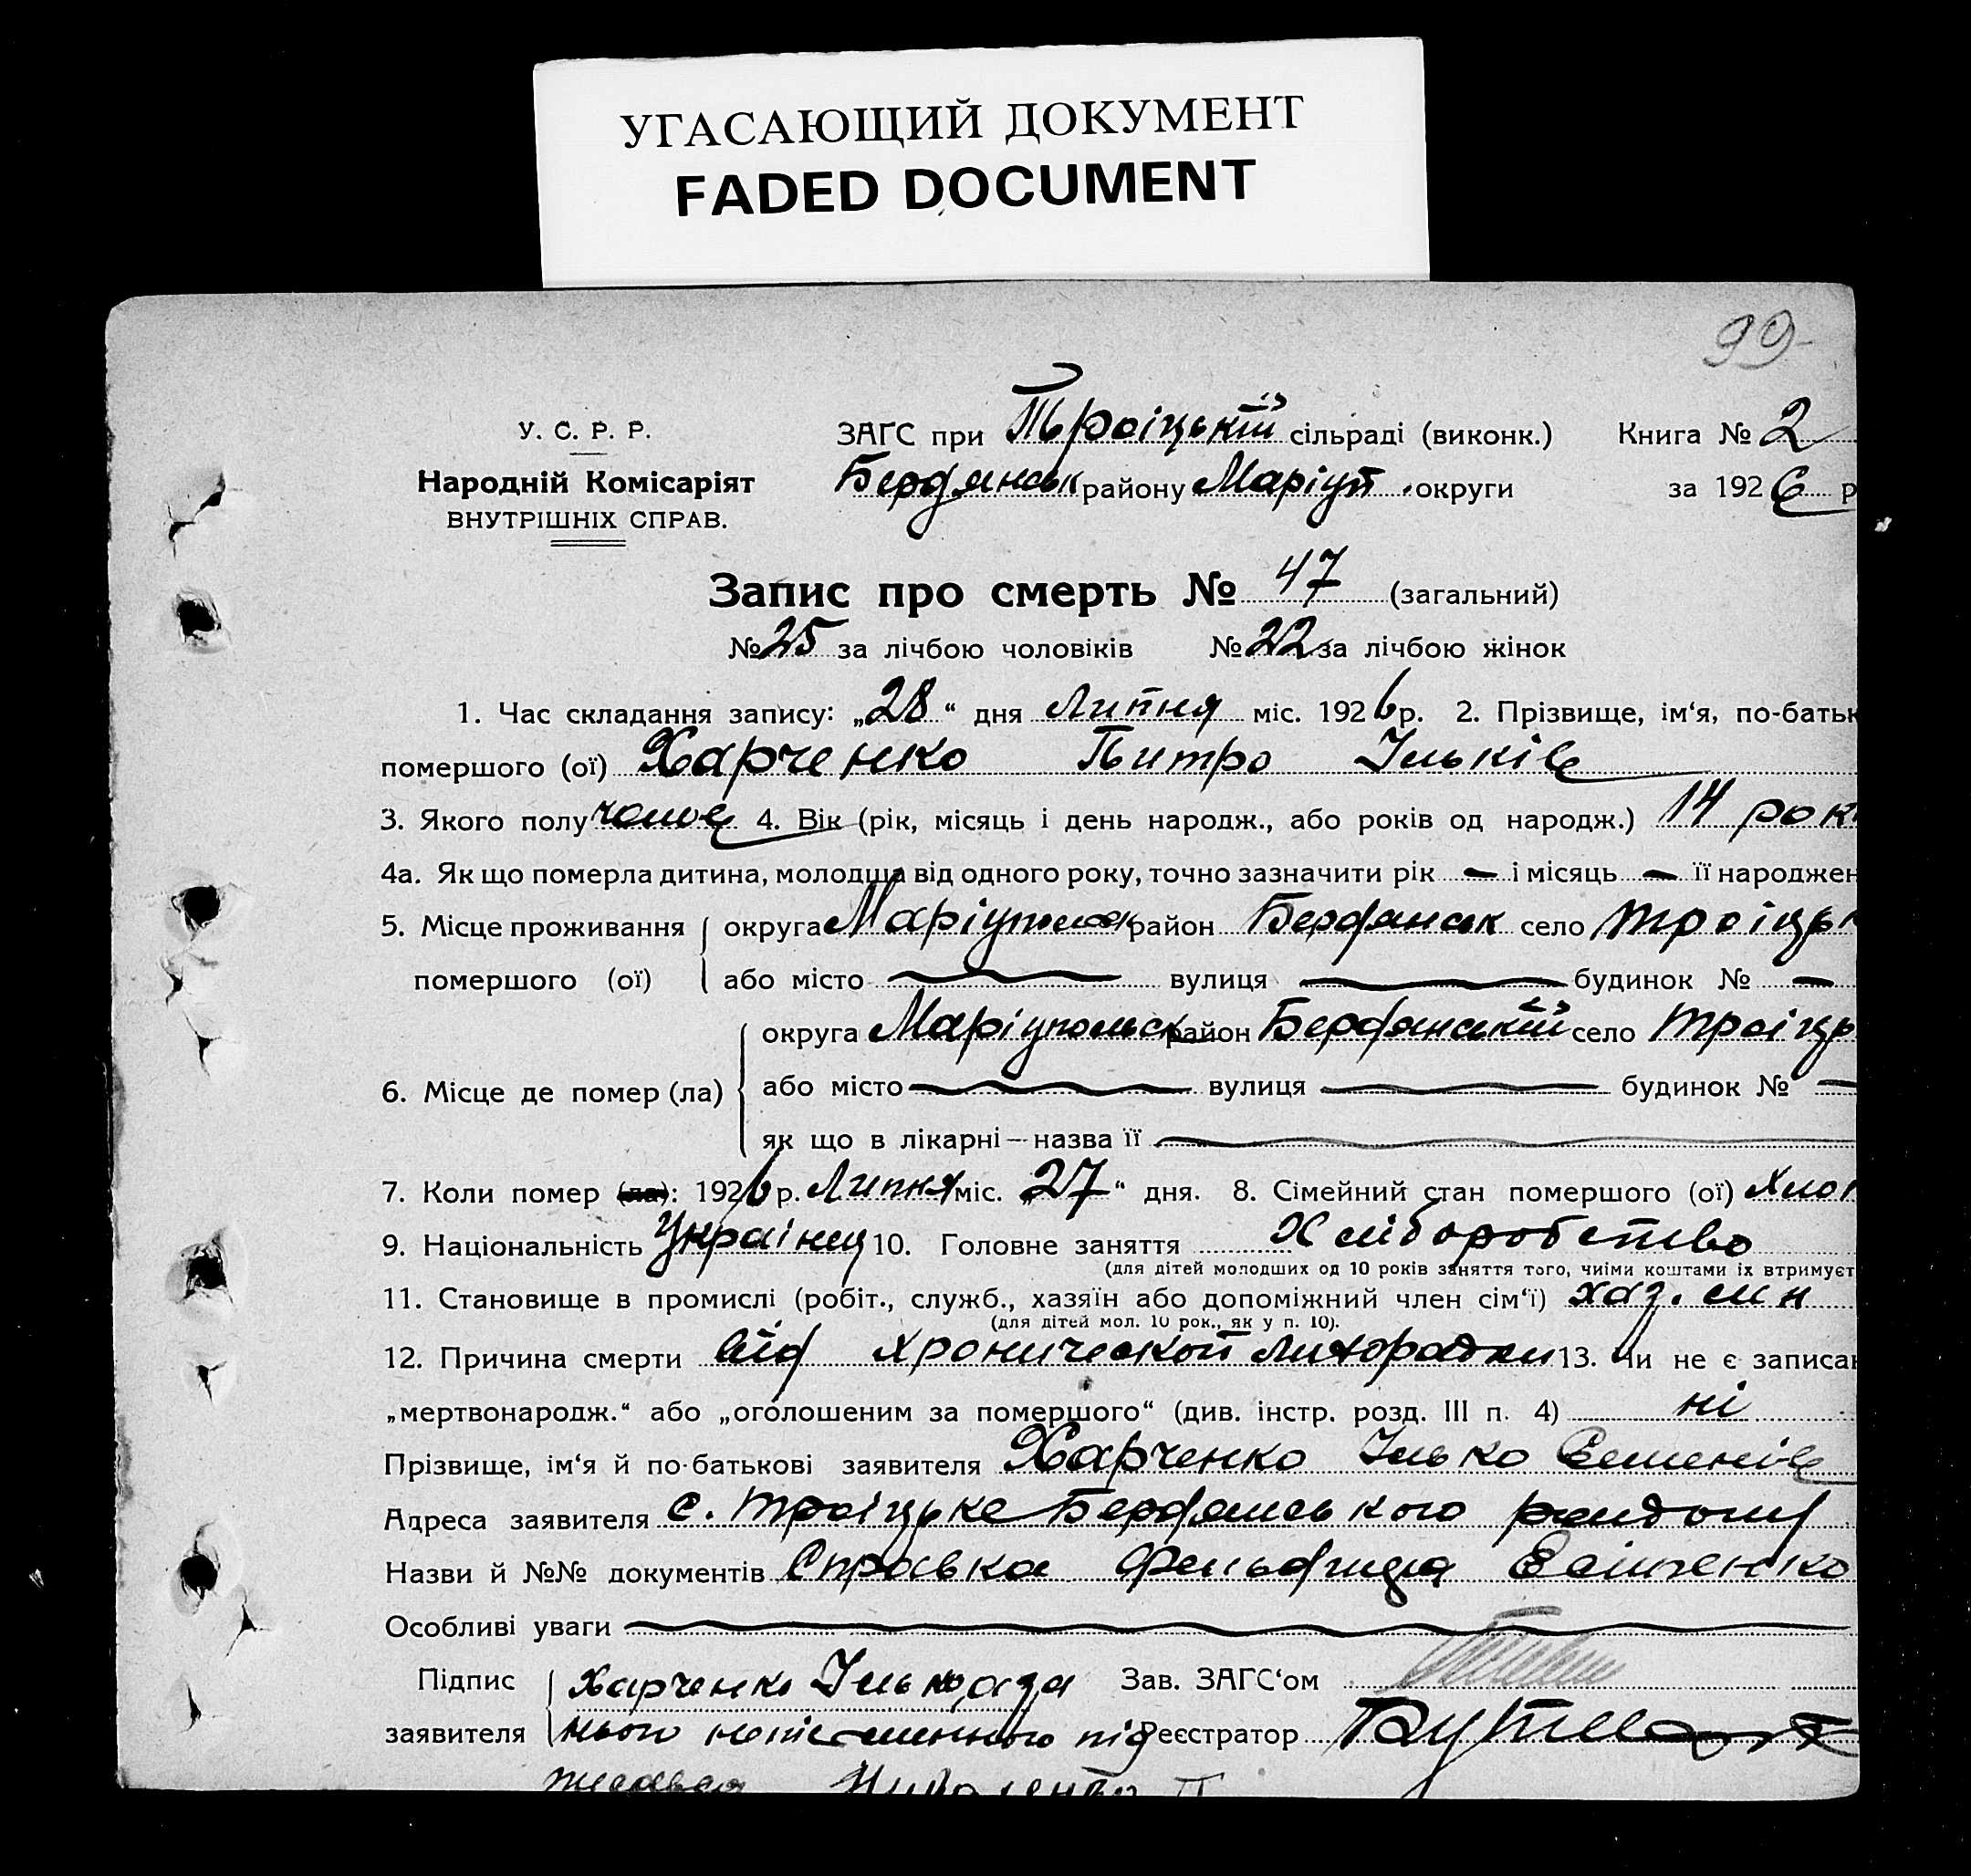 УГАСАЮЩИЙ ДОКУМЕНТ
FADED DOCUMENT
99
У. С. Р. Р.
Народній Комісаріят
ВНУТРІШНІХ СПРАВ.
ЗАГС при Троіцькій сільраді (виконк.) Книга № 2
Бердянськ району Маріуп. округи за 1926 р
Запис про смерть № 47 (загальний)
№ 25 за лічбою чоловіків № 22 за лічбою жінок
1. Час складання запису: „28“ дня Липня міс. 1926 р. 2. Прізвище, ім‘я, по-батьк
помершого (ої) Харченко Ильків
3. Якого полу чолов 4. Вік (рік, місяць і день народж., або років од народж.) 14 рок
4а. Як що померла дитина, молодша від одного року, точно зазначити рік — і місяць — її народжен
5. Місце проживання округа Маріупольськ район Бердянськ село Троіцьк
помершого (ої) або місто вулиця будинок № —
6. Місце де помер (ла) округа Маріупольськ район Бердянській село Троіць
або місто вулиця будинок № —
як що в лікарні—назва її
7. Коли помер (ла): 1926 р. Липня міс. „27“ дня. 8. Сімейний стан помершого (ої) Хлоп
9. Національність Украінец 10. Головне заняття Хліборобство
(для дітей молодших од 10 років заняття того, чиїми коштами їх втримует
11. Становище в промислі (робіт., служб., хазяїн або допоміжний член сім‘ї) хаз. син
(для дітей мол. 10 рок., як у п. 10).
12. Причина смерти від хронической лихорадки 13. Чи не є записан
„мертвонародж.“ або „оголошеним за помершого“ (див. інстр. розд. III п. 4) ні
Прізвище, ім‘я й по-батькові заявителя Харченко Илько Семенів
Адреса заявителя с. Троіцьке Бердянського району
Назви й №№ документів Справка Фельдшера
Особливі уваги
Підпис заявителя Харченко Илько, а за Зав. ЗАГС‘ом
нього неписьменного під Реєстратор